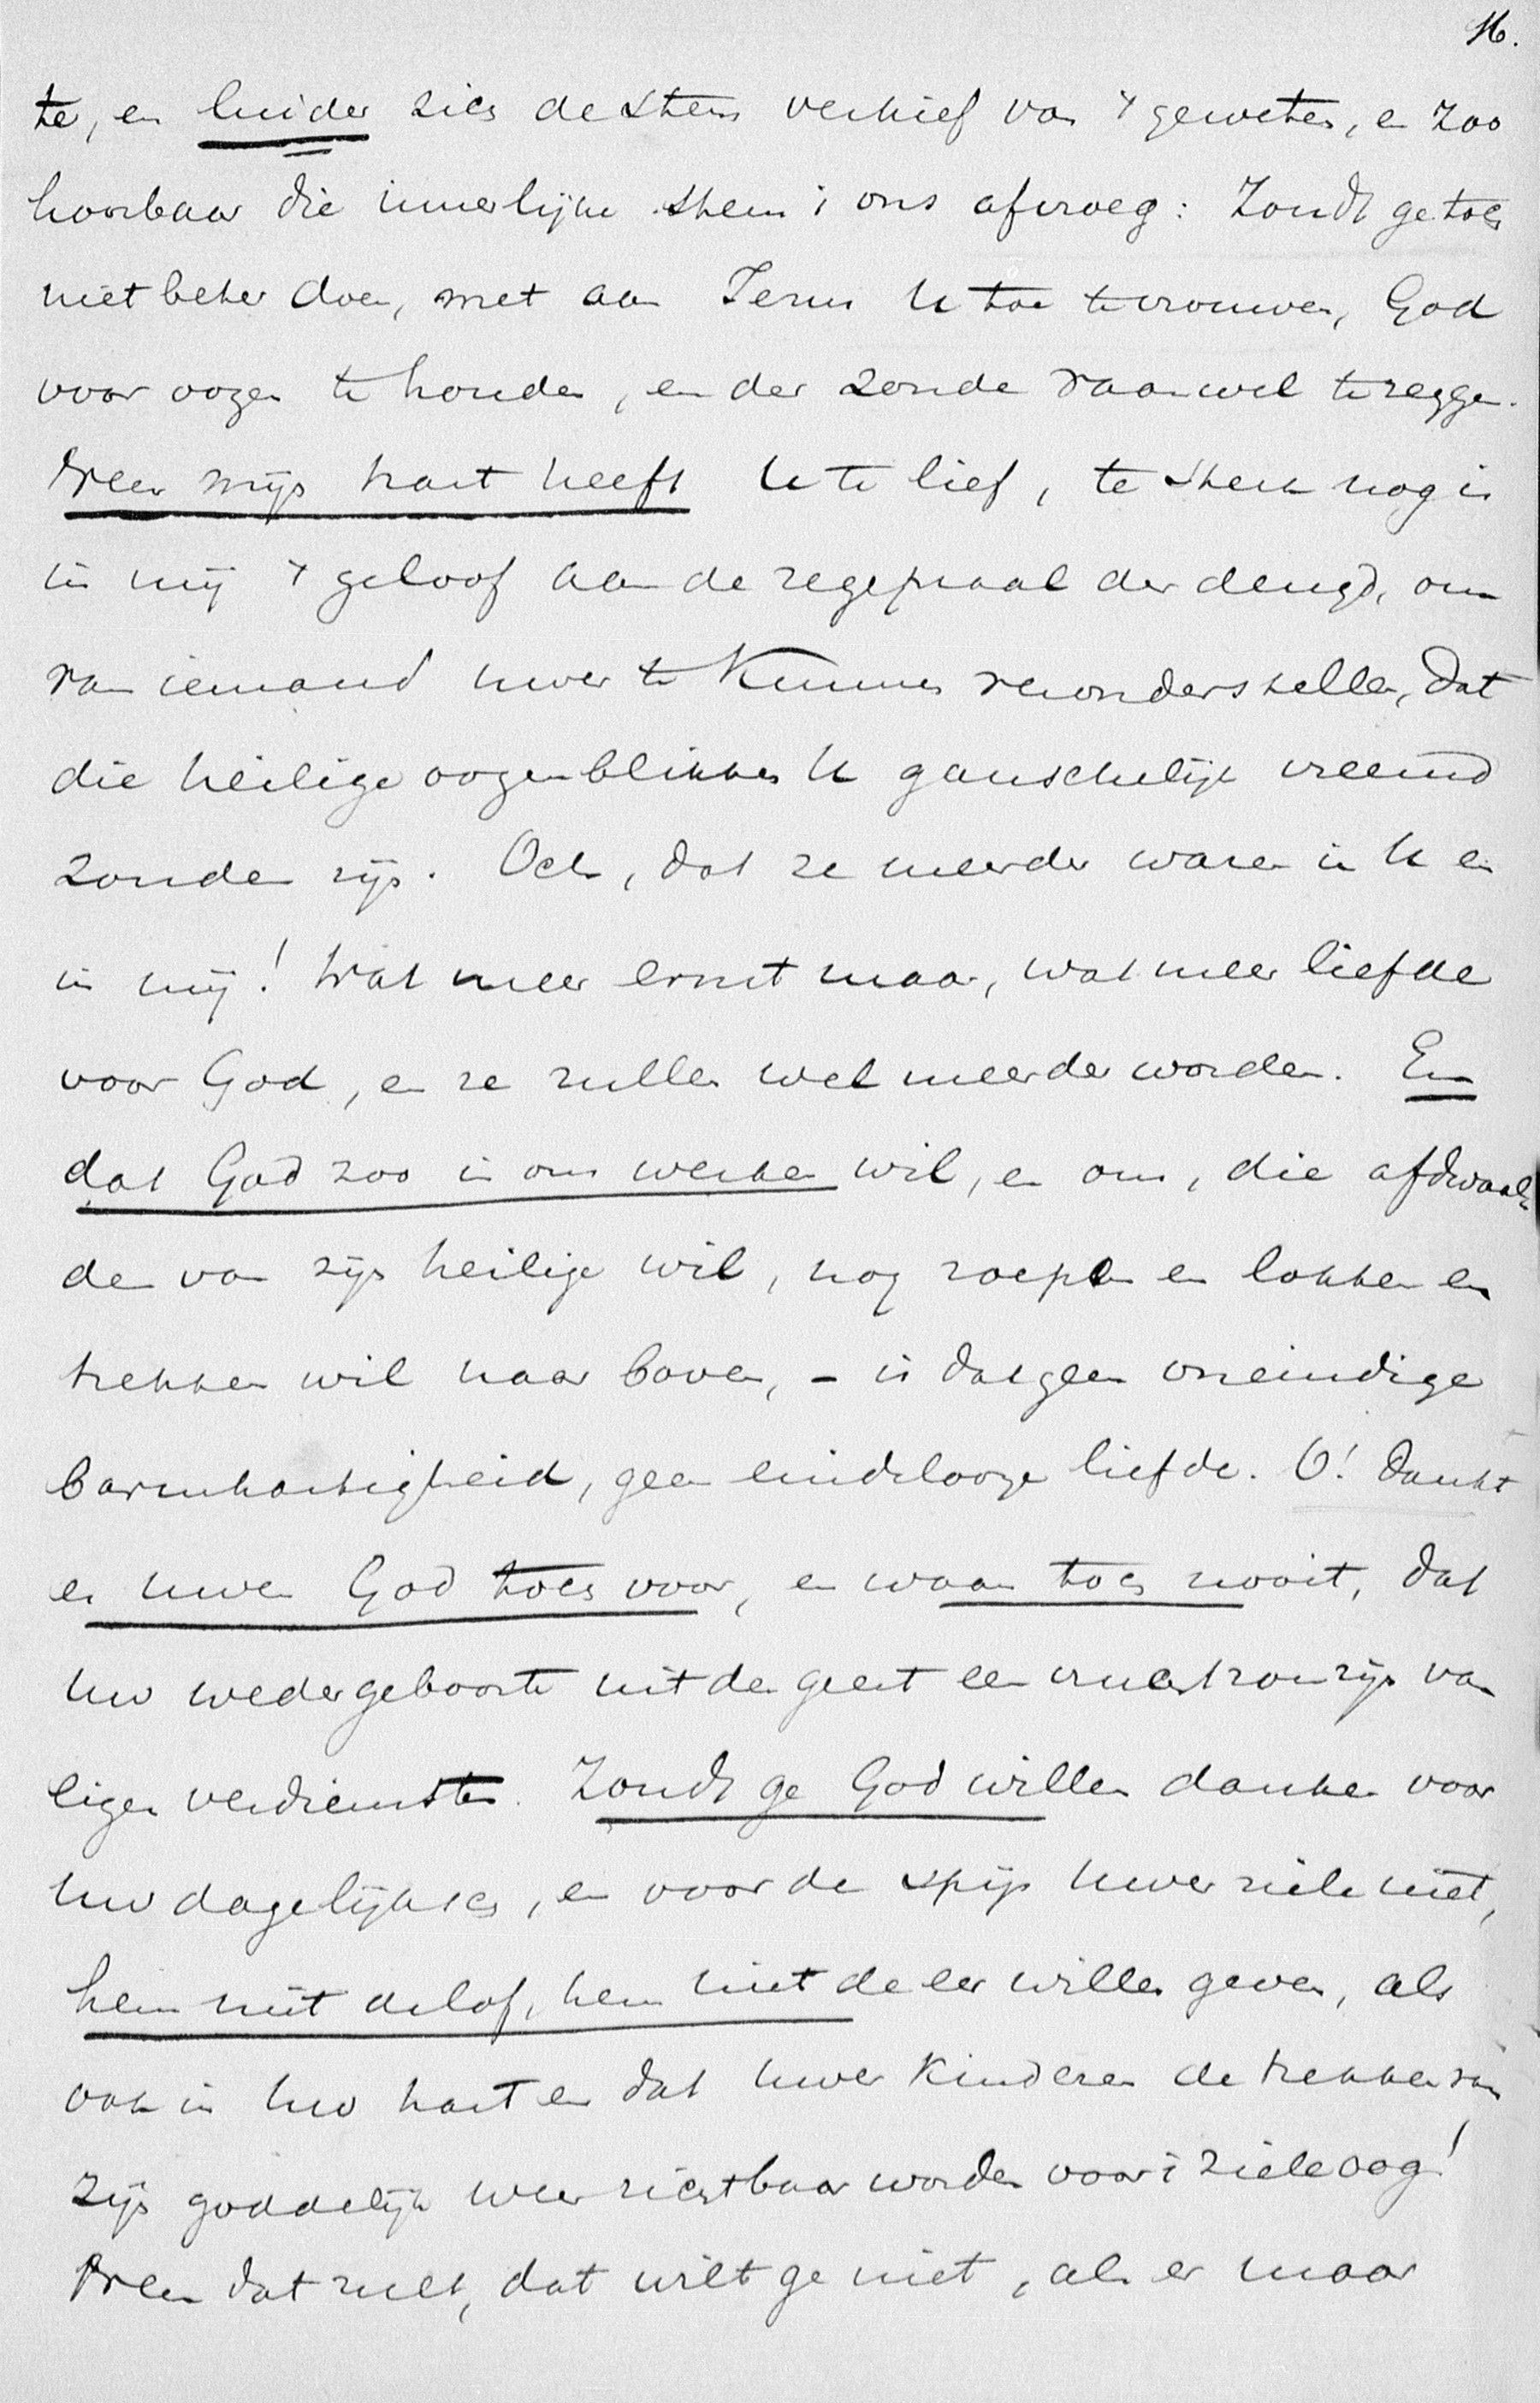 16.
te, en luider zich de stem verhief van 't geweten, en zoo
hoorbaar die innerlijke stem i ons afvroeg: Zoudt ge toch
niet beter doen, met aan Jezus U toe te vertrouwen, God
voor oogen te houden, en der zonde vaarwel te zeggen.
Neen mijn hart heeft U te lief, te sterk nog is
in mij 't geloof aan de zegepraal der deugd, om
van iemand uwer te kunnen veronderstellen, dat
die heilige oogenblikken U ganschelijk vreemd
zouden zijn. Och, dat ze meerder waren in U en
in mij! Wat meer ernst maar, wat meer liefde
voor God, en ze zullen wel meerder worden. En
dat God zoo in ons werken wil, en ons, die afdwaal-
den van zijn heilige wil, nog roepen en lokken en
trekken wil naar boven, – is dat geen oneindige
barmhartigheid, geen eindelooze liefde. O! dankt
er uwen God toch voor, en waan toch nooit, dat
uw wedergeboorte uit den geest een vrucht zou zijn van
eigen verdiensten. Zoudt ge God willen danken voor
uw dagelijksch, en voor de spijs uwer ziele niet,
hem niet de lof, hem niet de eer willen geven, als
ook in uw hart en dat uwer kinderen de trekken van
zijn goddelijk weer zichtbaar worden voor 't zieleoog!
Neen dat zult, dat wilt ge niet, als er maar